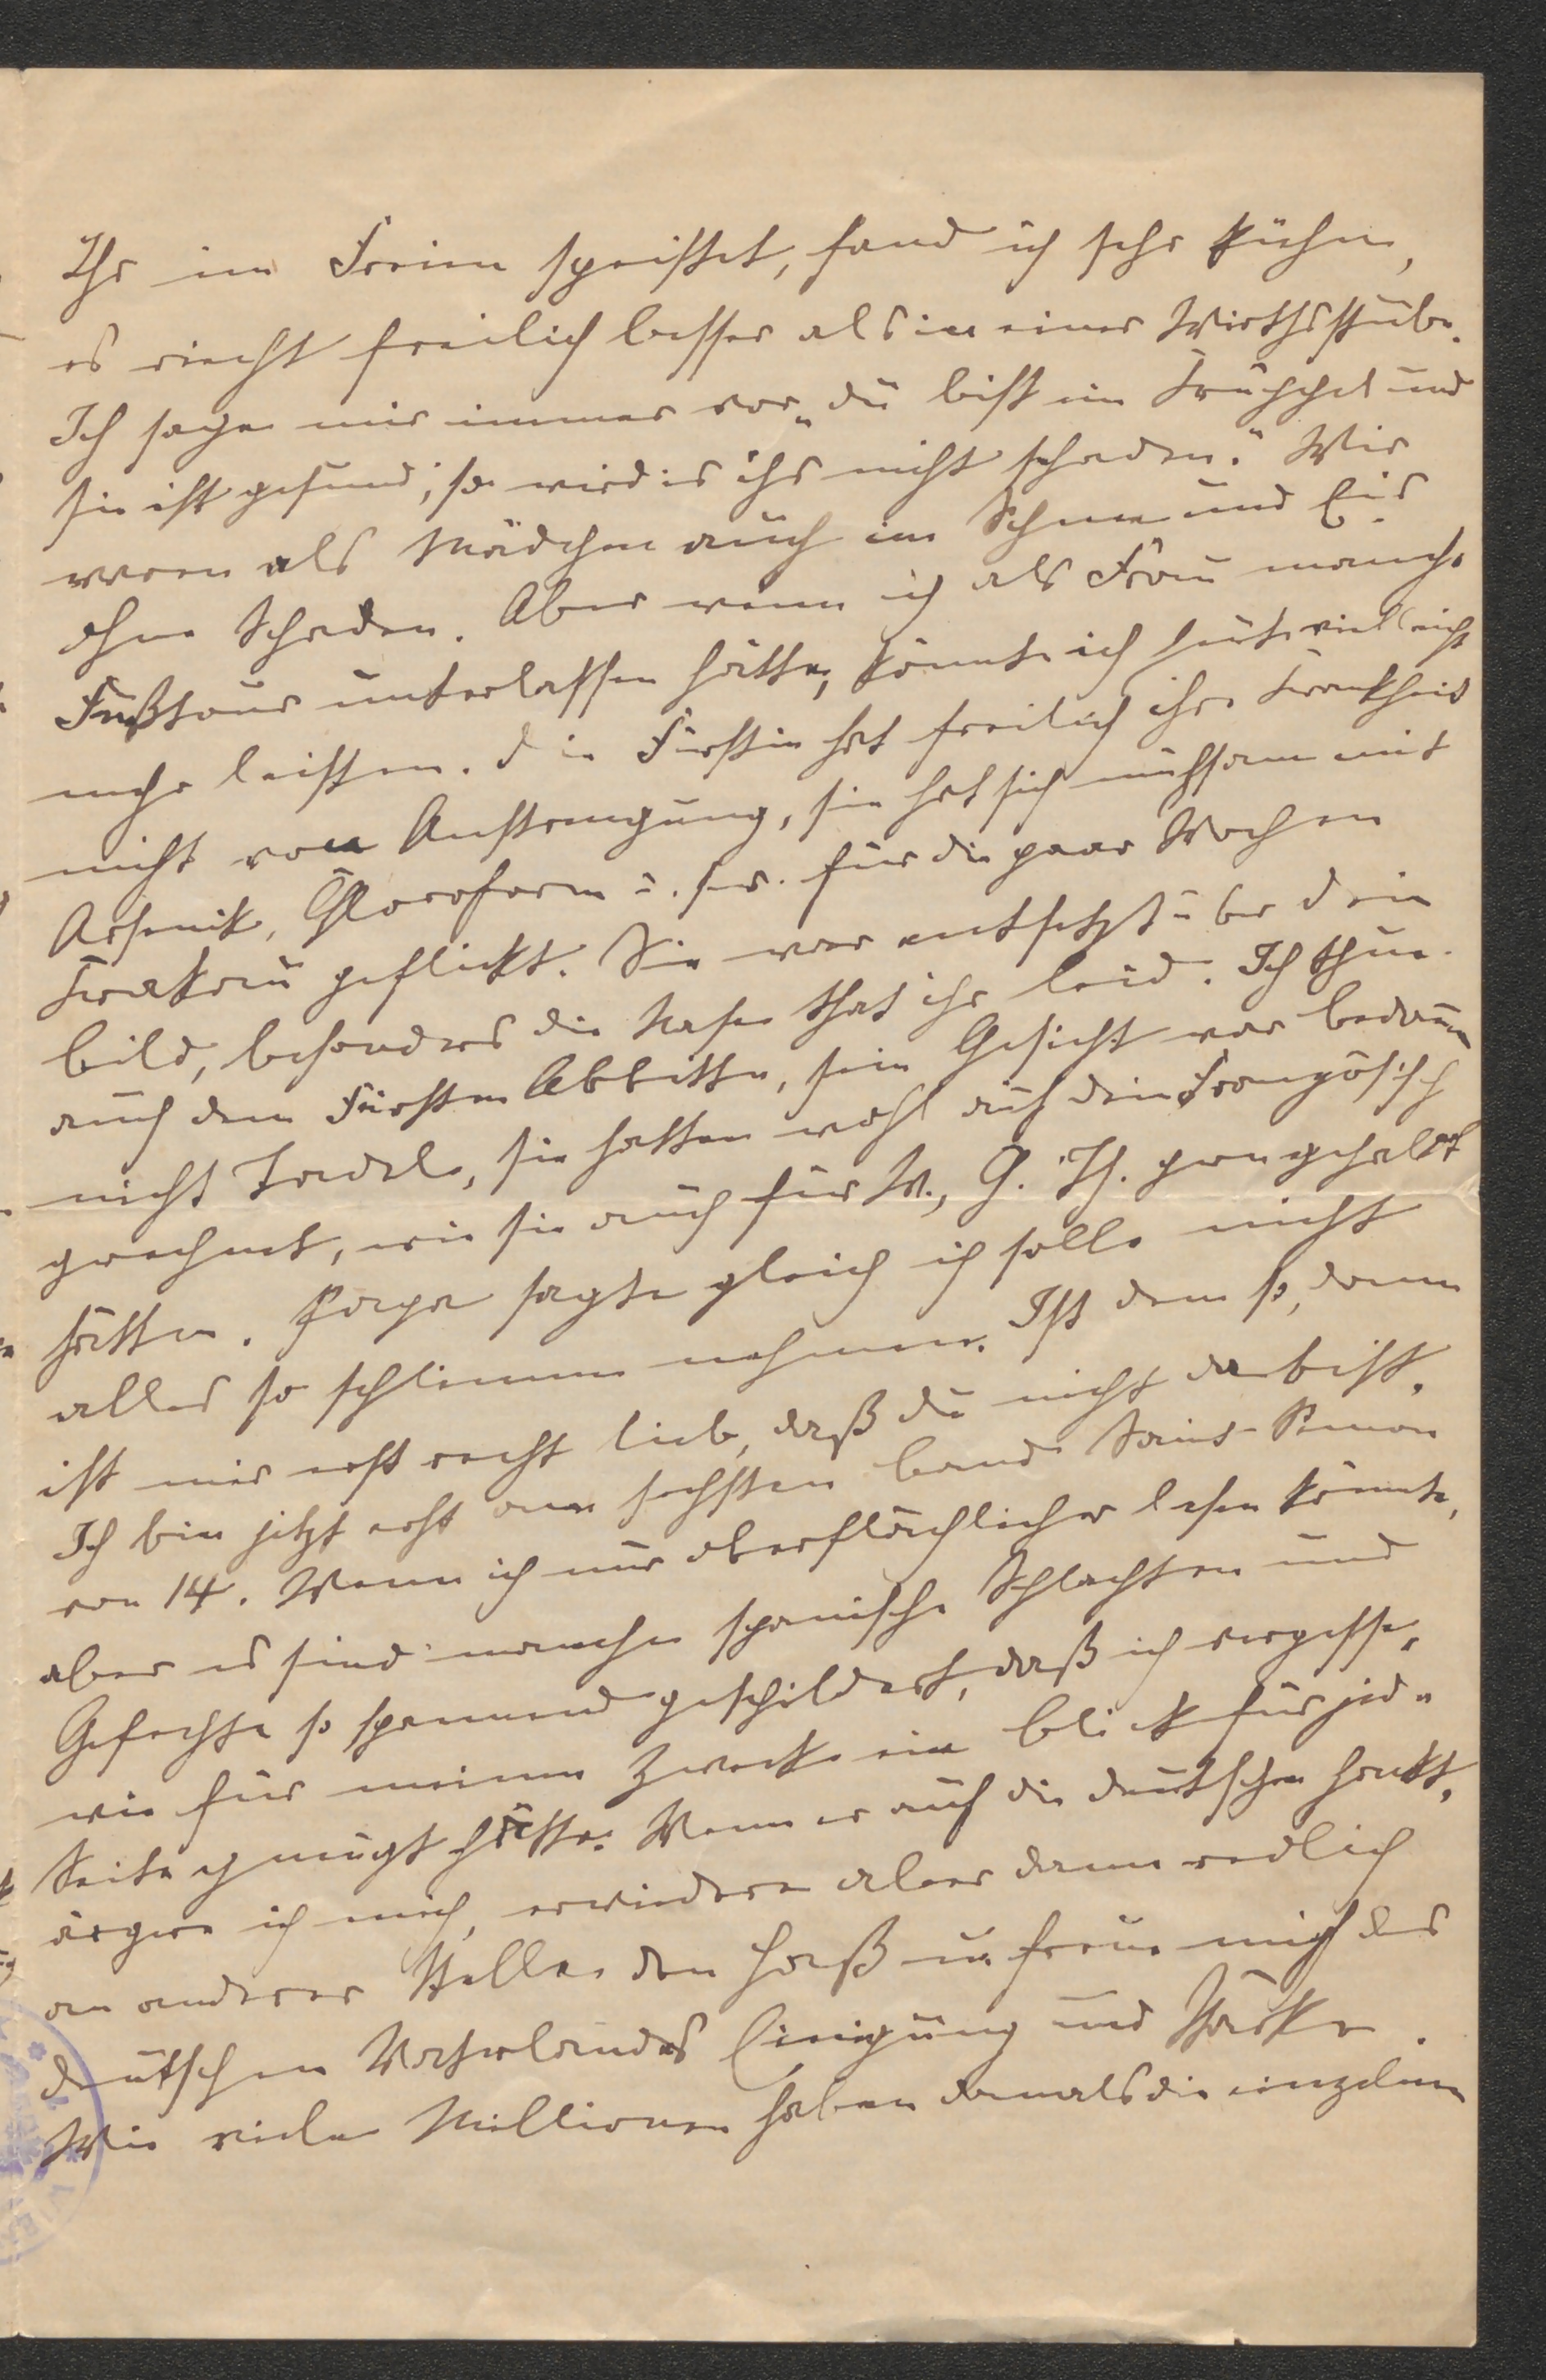 Ihr im Freien speistet, fand ich sehr kühn,
es riecht freilich besser als in einer Wirthsstube.
Ich sage mir immer vor „du bist ein Krüppel und
sie ist gesund, so wird es ihr nicht schaden." Wir
waren als Mädchen auch im Schnee und Eis
ohne Schaden. Aber wenn ich als Frau manche
Fußtour unterlassen hätte, könnte ich heute vielleicht
mehr leisten. Die Fürstin hat freilich ihre Krankheit
nicht von Anstrengung, sie hat sich mühsam mit
Arsenik, Chloroform u. s. w. für die paar Wochen
Krakau geflickt. Sie war entsetzt über dein
Bild, besonders die Nase that ihr leid. Ich thue
auch dem Fürsten Abbitte, sein Gesicht war Bedauern
nicht Tadel, sie hatten wohl auf dein Französisch
gerechnet, wie sie auch für W., G. Th. gern gehabt
hätten. Papa sagte gleich ich solle nicht
alles so schlimm nehmen. Ist dem so, dann
ist mir erst recht lieb, daß du nicht da bist.
Ich bin jetzt erst am sechsten Band Saint-Simon
von 14. Wenn ich nur oberflächlicher lesen könnte,
aber es sind manche spanische Schlachten und
Gefechte so spannend geschildert, daß ich vergesse,
wie für meine Zwecke ein Blick für jede
Seite genügt hätte. Wenn er auf die Deutschen hackt,
ärgere ich mich, erwiedere aber dann redlich
an anderer Stelle den Haß u. freue mich des
deutschen Vaterlandes Einigung und Stärke.
Wie viele Millionen haben damals die einzelnen